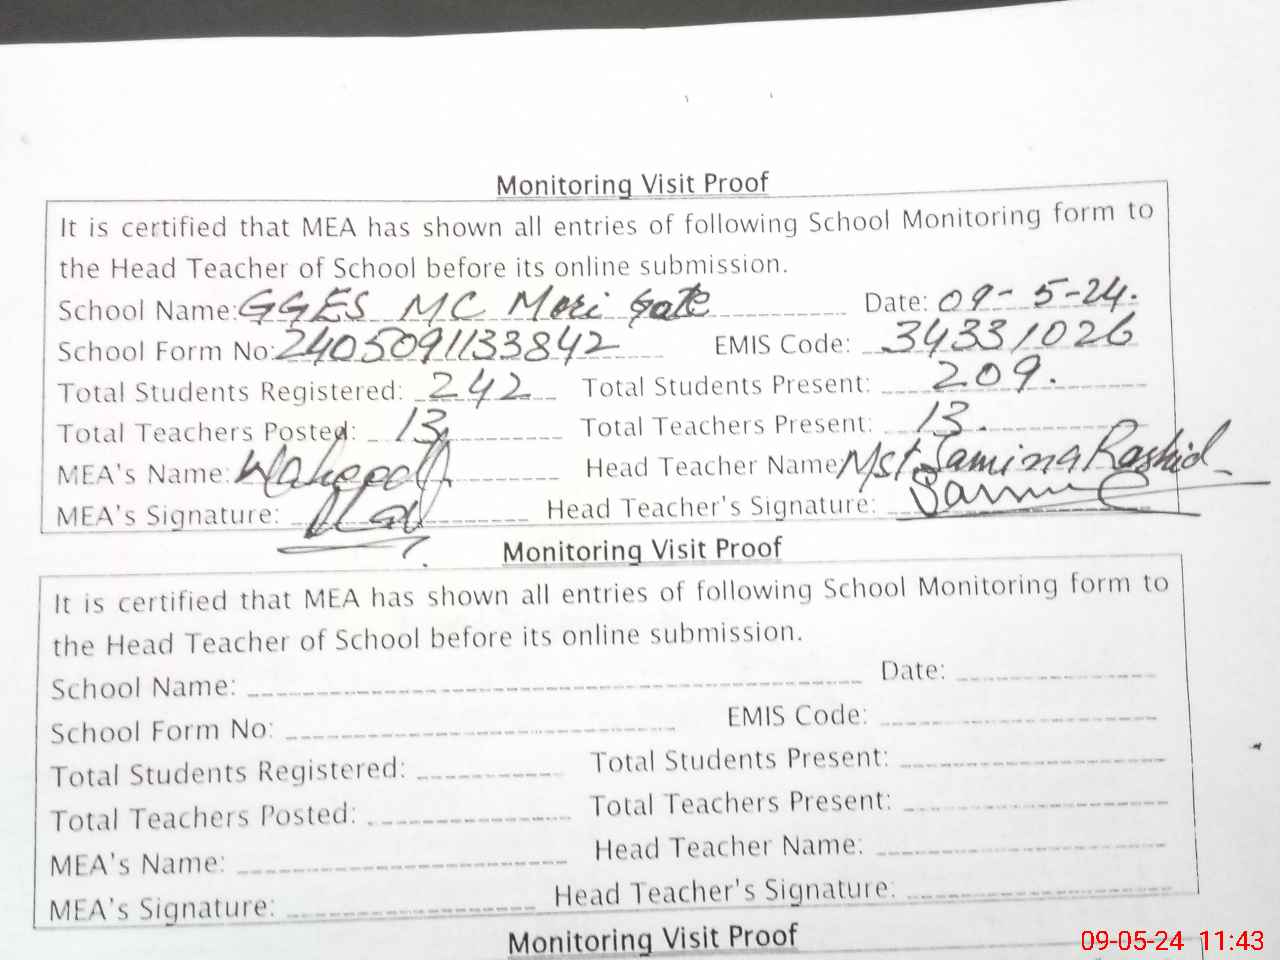 Monitoring Visit Proof
It is certified that MEA has shown all entries of following School Monitoring form to
the Head Teacher of School before its online submission.
School Name: GGES MC Mori Gate Date: 09-5-24.
School Form No: 2405091133842 EMIS Code: 34331026
Total Students Registered: 242 Total Students Present: 209.
Total Teachers Posted: 13 Total Teachers Present: 13.
MEA's Name: Head Teacher Name: Mst. Samina Rashid
MEA's Signature: Head Teacher's Signature:
Monitoring Visit Proof
It is certified that MEA has shown all entries of following School Monitoring form to
the Head Teacher of School before its online submission.
School Name: Date:
School Form No: EMIS Code:
Total Students Registered: Total Students Present:
Total Teachers Posted: Total Teachers Present:
MEA's Name: Head Teacher Name:
MEA's Signature: Head Teacher's Signature:
Monitoring Visit Proof
09-05-24 11:43